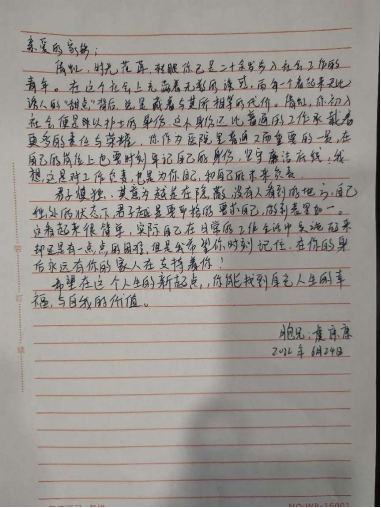 亲爱的家妹:
时光荏苒,转眼你已是二十余岁步入社会工作的
青年。在这个社会上充满着无数的诱惑,而每一个看起来无比
诱人的"甜点"背后,也是藏着与其所相等的代价。你初入
社会便是以护士的身份,这个身份还比普通的工作承载着
更多的责任与荣耀,你作为医院里普通又而重要的一员,在
自己的岗位上也要时刻牢记自己的身份,坚守廉洁底线,我
想,这是对工作负责,也是为你自己,和自己的未来负责。
君子慎独,其意为越是在隐蔽,没有人看到的地方,自己
独处的状态下,君子越是要严格的要求自己,做到表里如一。
这看起来很简单,实际自己在日常的工作生活中实施起来
却还是有一点点的困难,但是公希望你时刻记住,在你的身
后永远有你的家人在支持着你!
希望在这个人生的新起点,你能找到属于自己人生的幸
福,与自我的价值。
胞兄:
2022年6月24日
NO:WB-16001